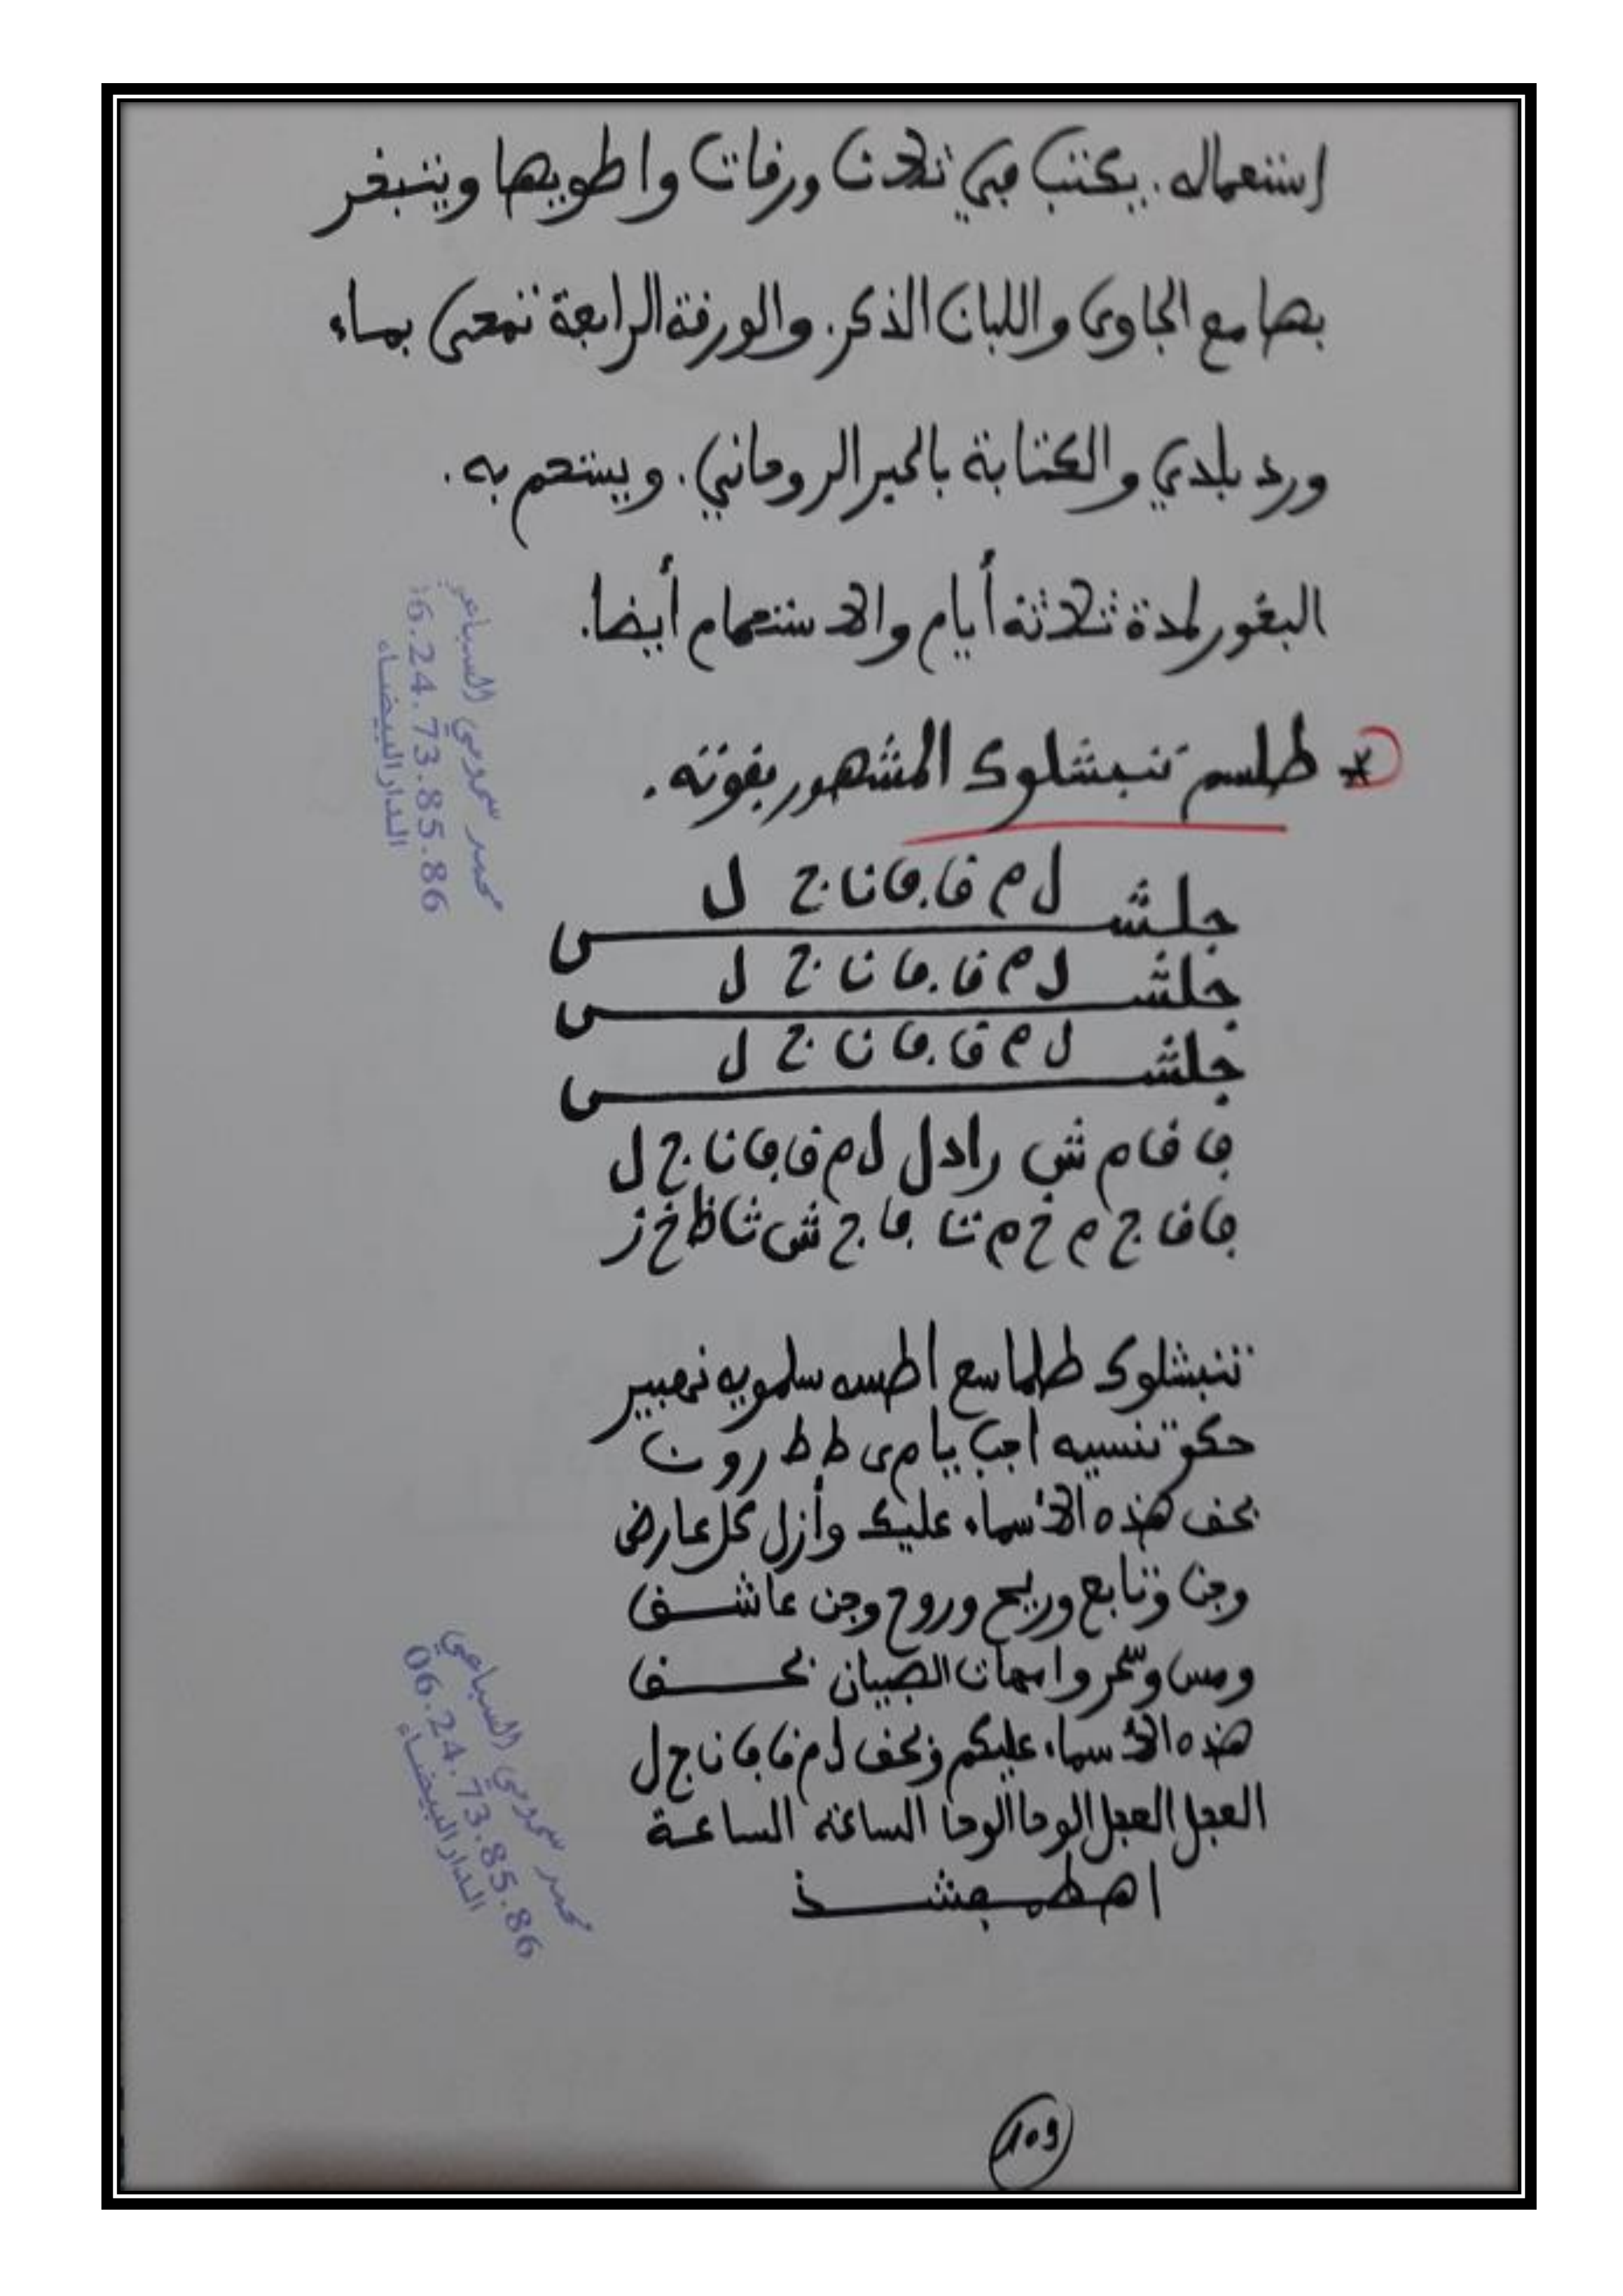 إستعماله. يكتب في ثلاث ورقات واطويها ويتبخر
بها مع الجاوي واللبان الذكر. والورقة الرابعة تمحى بماء
ورد بلدي والكتابة بالحبر الروحاني. ويستحم به.
البخور لمدة ثلاثة أيام والاستحمام أيضا.
* طلسم تنبشلوك المشهور بقوته.
ل م قا. فا نا ج ل
جلشـــــس
ل م قا. فا نا ج ل
جلشـــــس
ل م قا. فا نا ج ل
جلشـــــس
فا قام ش رادل ل م قا فا نا ج ل
فا قا ج م خ م تا فا ج ش ثا ظ خ ز
تنبشلوك طلما سع اطسه سلمويه
اجب يا م ى ط ط رون
بحق هذه الأسماء عليك وأزل كل عارض
وجن وتابع وريح وروح وجن عاشـــق
ومس وسحر وامهات الصبيان بحـــــق
هذه الأسماء عليكم وبحق ل م قا فا نا ج ل
العجل العجل الوحا الوحا الساعة الساعـة
اهطمفشـــــذ
محمد السباعي
06.24.73.85.86
الدار البيضاء
محمد السباعي
06.24.73.85.86
الدار البيضاء
109